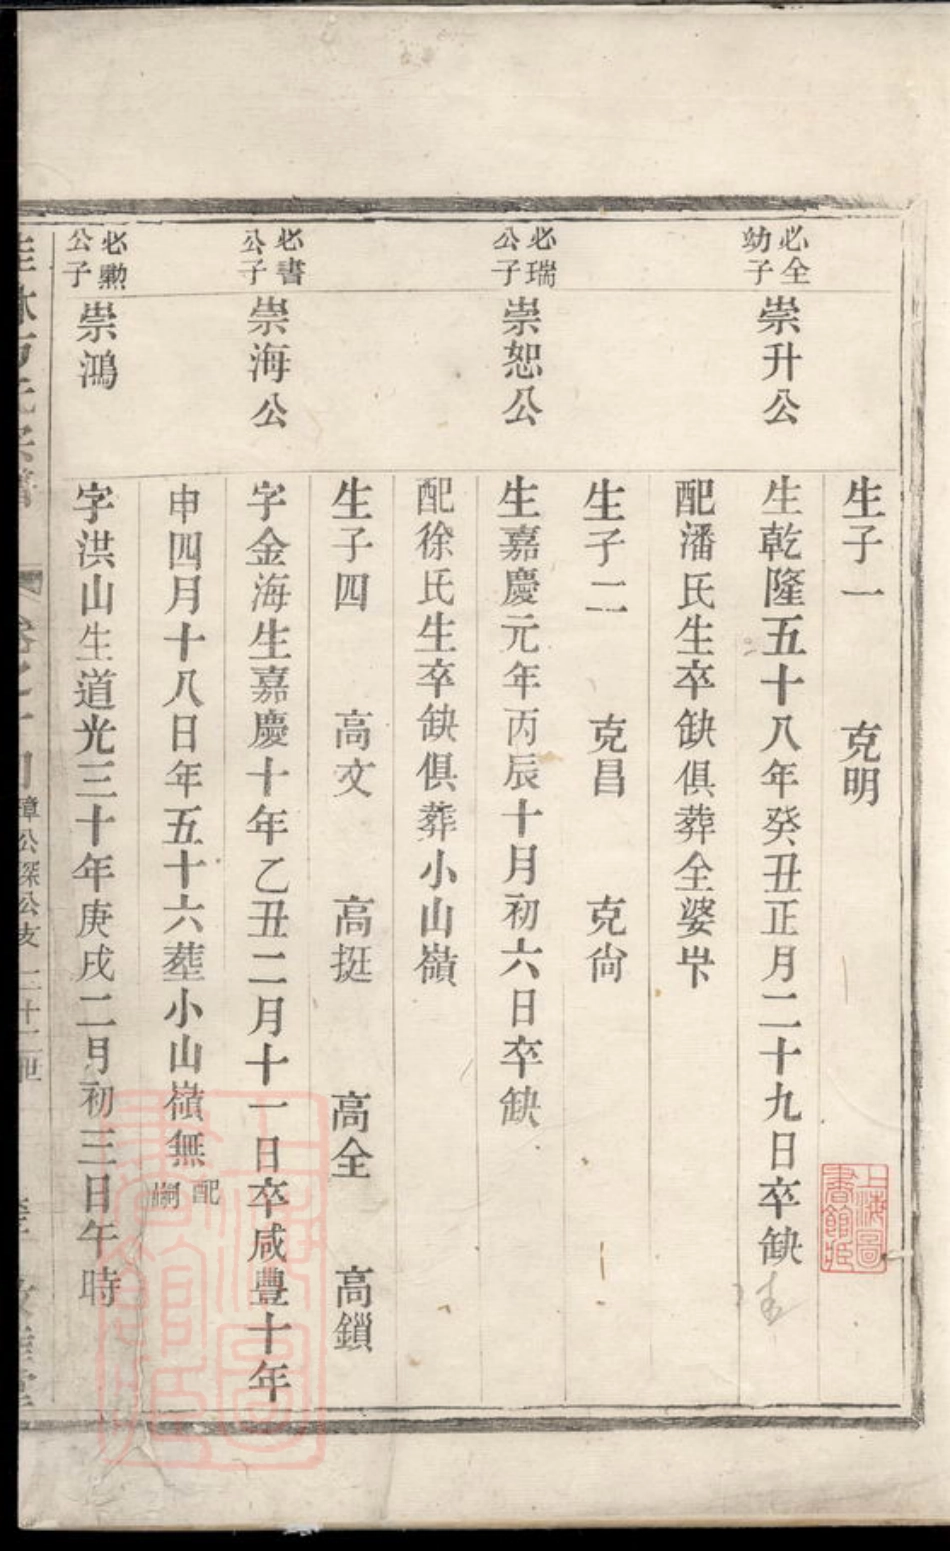 生子一 克明
必全幼子
崇升公
生乾隆五十八年癸丑正月二十九日卒缺
配潘氏生卒缺俱葬全婆㘰
生子二 克昌 克尙
必瑞公子
崇恕公
生嘉慶元年丙辰十月初六日卒缺
配徐氏生卒缺俱葬小山嶺
生子四 高文 高挺 高全 高鎖
必書公子
崇海公
字金海生嘉慶十年乙丑二月十一日卒咸豐十年
申四月十八日年五十六塟小山嶺無配嗣
必勲公子
崇鴻
字洪山生道光三十年庚戌二月初三日午時
上海圖書館藏